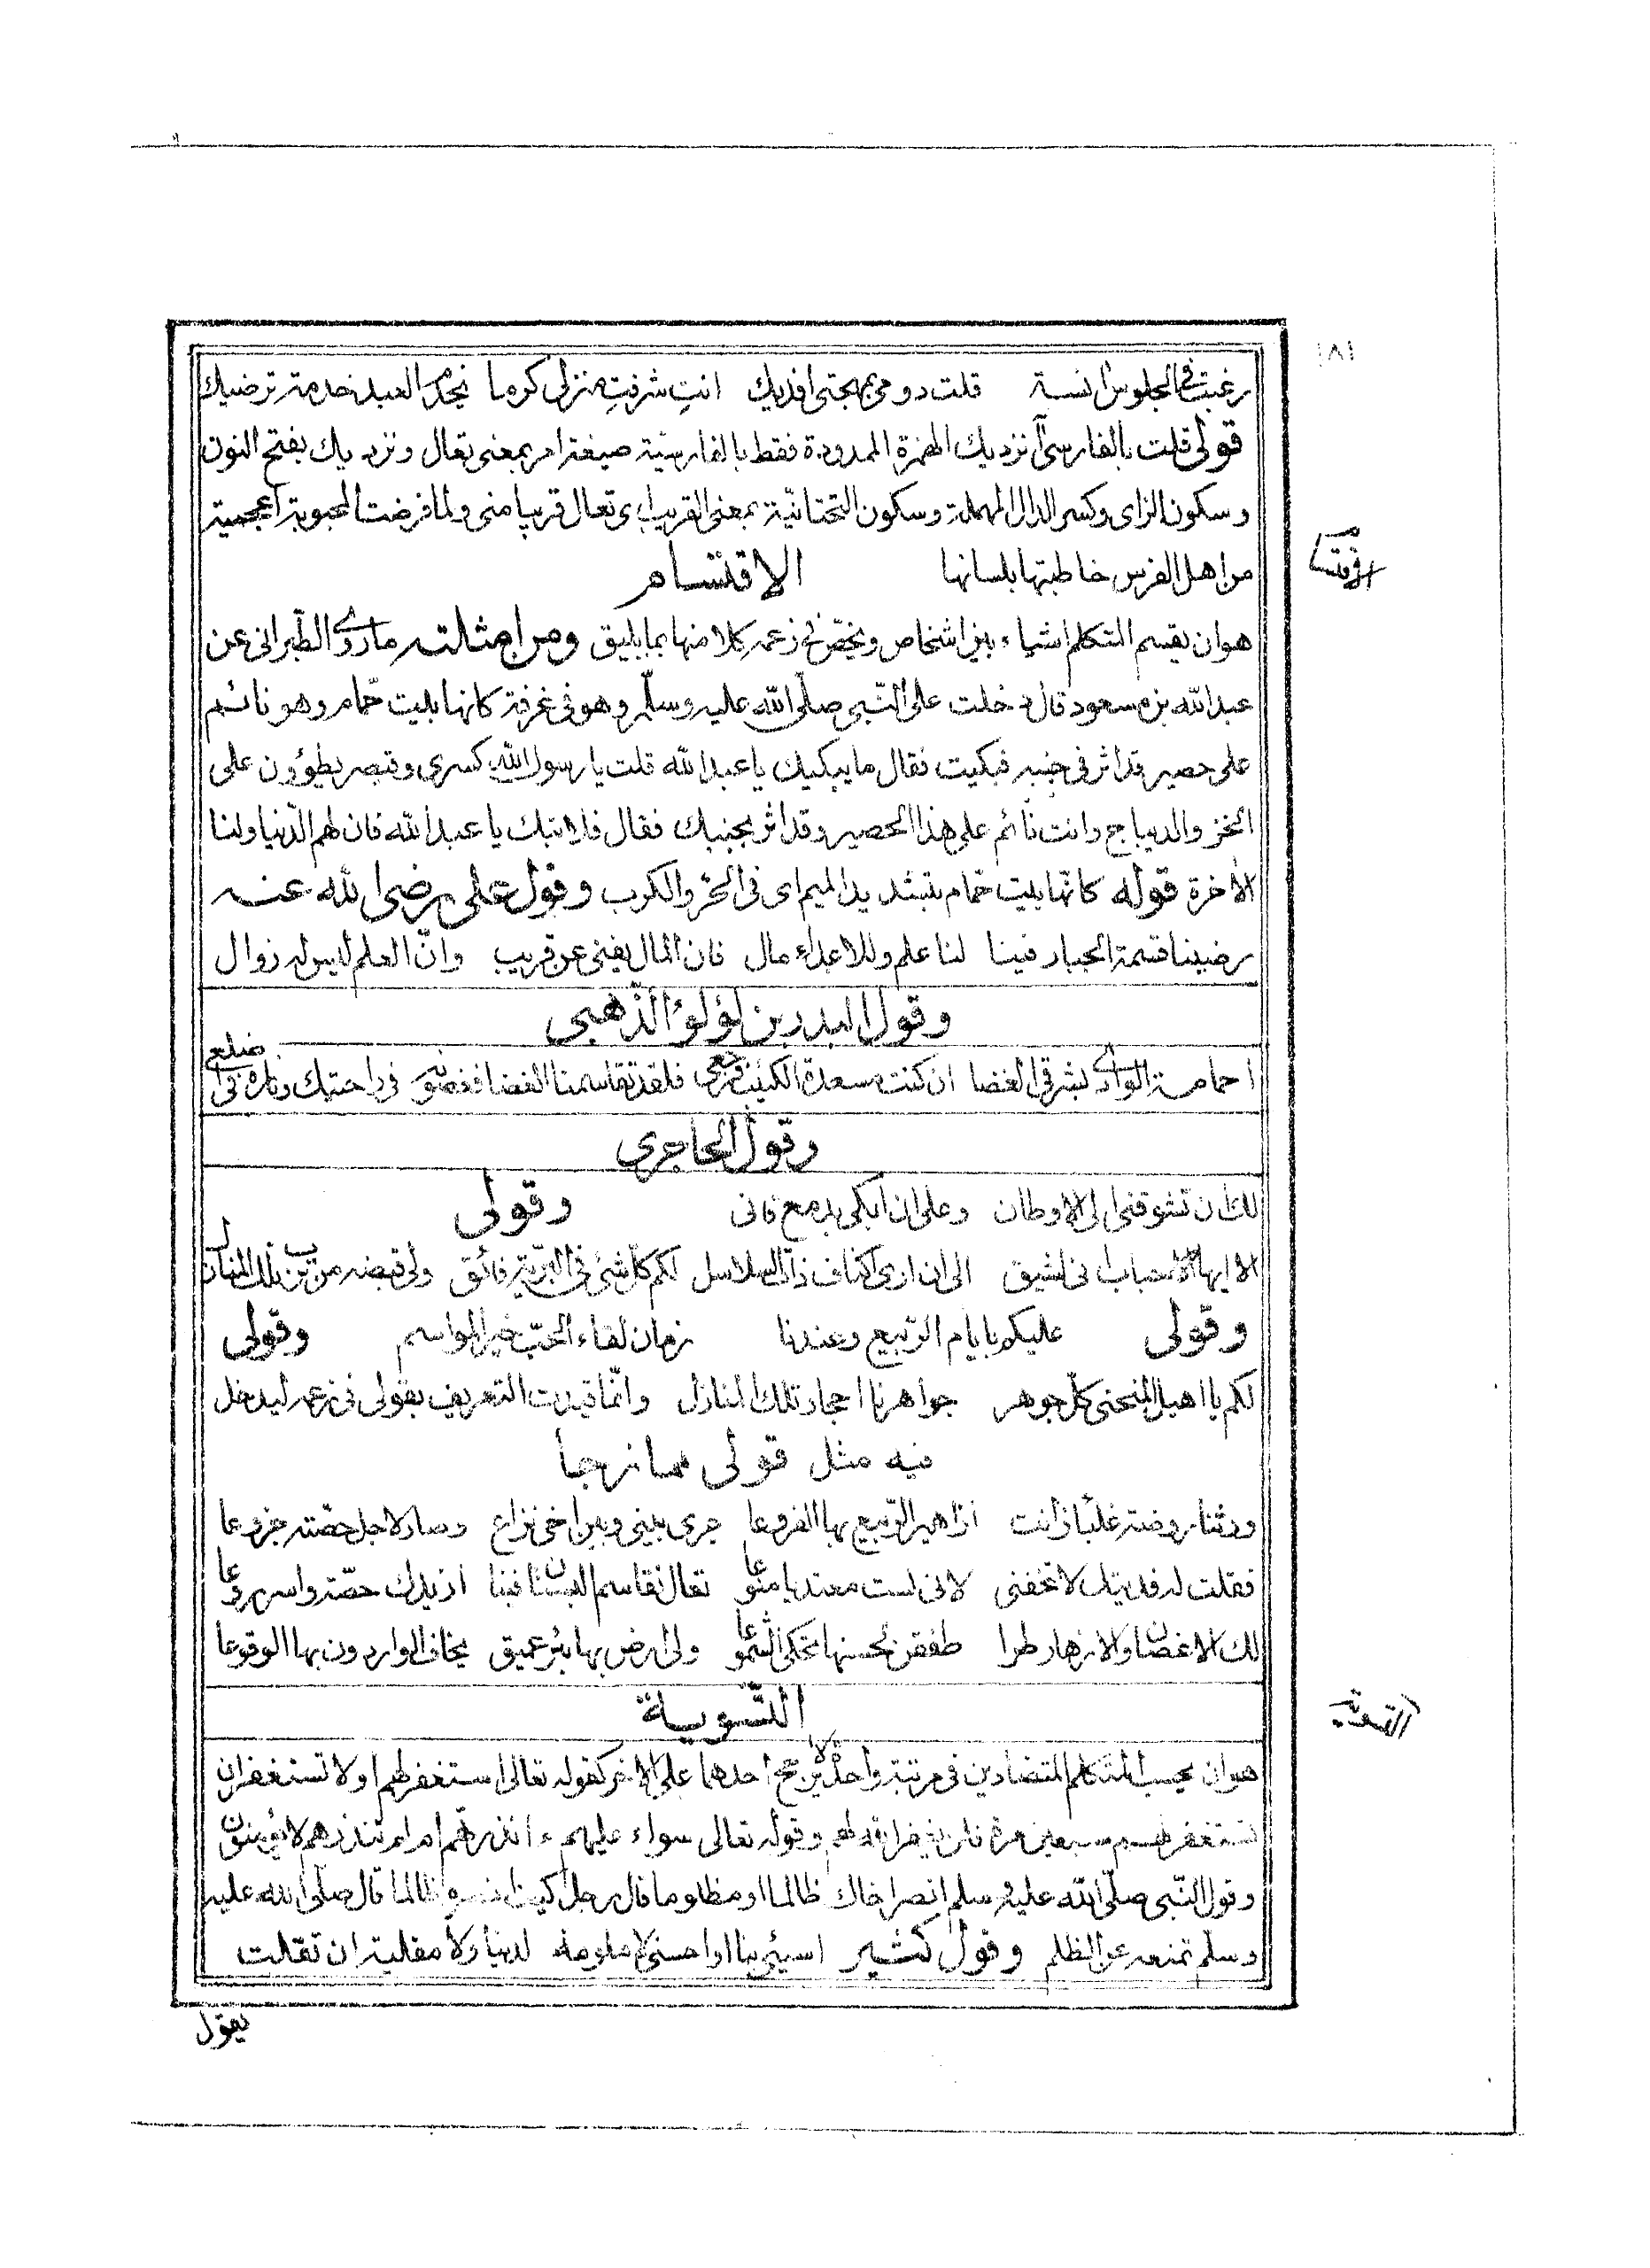 ١٨١
رغبت في الجلوس آنسة قلت دومي بمهجتي افديك انتِ شرفتِ منزلي كرما نحكم العبد خدمة ترضيك
قولي قلت بالفارسي آنزديك الهمزة الممدودة فقط بالفارسيّة صيغة امر بمعنى تعال ونزديك بفتح النون
وسكون الزاى وكسر الدال المهملة وسكون التحتانيّة بمعنى القريب اى تعال قريبا منى ولما فرضت المحبوبة اعجمية
من اهل الفرس خاطبتها بلسانها الاقتسام
الاقتسام
هو ان يقسم المتكلم اشياء بين اشخاص ويخصّ في زعمه كلا منها بما يليق ومن امثلته ما روى الطّبراني عن
عبد الله بن مسعود قال دخلت على النّبي صلّى الله عليه وسلّم وهو في غرفة كانها بيت حمّام وهو نائم
على حصير قد اثر في جنبه فبكيت فقال ما يبكيك يا عبد الله قلت يا رسول الله كسرى وقيصر يطؤون على
الخز والديباج وانت نائم على هذا الحصير وقد اثر بجنبك فقال فلا تبك يا عبد الله فان لهم الدّنيا ولنا
الاخرة قوله كانّها بيت حمّام بتشديد الميم اى في الحرّ والكرب وقول على رضي الله عنه
رضينا قسمة الجبار فينا لنا علم وللاعداء مال فان المال يفنى عن قريب وانّ العلم ليس له زوال
وقول البدر بن لؤلؤ الذّهبي
احمامة الوادي بشرقي الغضا ان كنت مسعدة الكئيب فرجعي فلقد تقاسمنا الغضا فغضونه في راحتيك وناره في اضلعي
وقول الحاجري
لك ان تشوقني الى الاوطان وعلى ان ابكي بدمع قاني وقولي
الا ايها الاحباب اني لشيق الى ان ارى اكناف ذات السلاسل لكم كل شئ في البريّة فائق ولي قبضة من ترب تلك المنازل
وقولي عليكم بايام الرّبيع وعندنا زمان لقاء الحبّ خير المواسم وقولي
لكم يا اهيل المنحنى كل جوهر جواهرنا احجار تلك المنازل وانّما قيدت التعريف بقولي في زعمه ليدخل
فيه مثل قولي ممازحا
ورثنا روضة غلبا ازانت ازاهير الرّبيع بها الفروعا جرى بيني وبين اخي نزاع وصار لاجل حصّته جزوعا
فقلت له فديتك لا تخفني لاني لست معتديا منوعا تعال نقاسم البستان فينا ازيدك حصّة واسر روعا
لك الاغصان والازهار طرا طفقن بحسنها تحكي الشموعا ولي ارض بها بئر عميق يخاف الواردون بها الوقوعا
التّسوية
التسوية
هو ان يجيب المتكلم المتضادين في مرتبة واحدة لا يرجح احدهما على الاخر كقوله تعالى استغفر لهم او لا تستغفر ان
تستغفر لهم سبعين مرة فلن يغفر الله لهم وقوله تعالى سواء عليهم ءانذرتهم ام لم تنذرهم لا يؤمنون
وقول النّبي صلّى الله عليه وسلم انصر اخاك ظالما او مظلوما قال رجل كيف انصره ظالما قال صلّى الله عليه
وسلّم تمنعه عن الظلم وقول كثير اسيئي بنا او احسني لا ملومة لدينا ولا مقلية ان تقلت
يقول